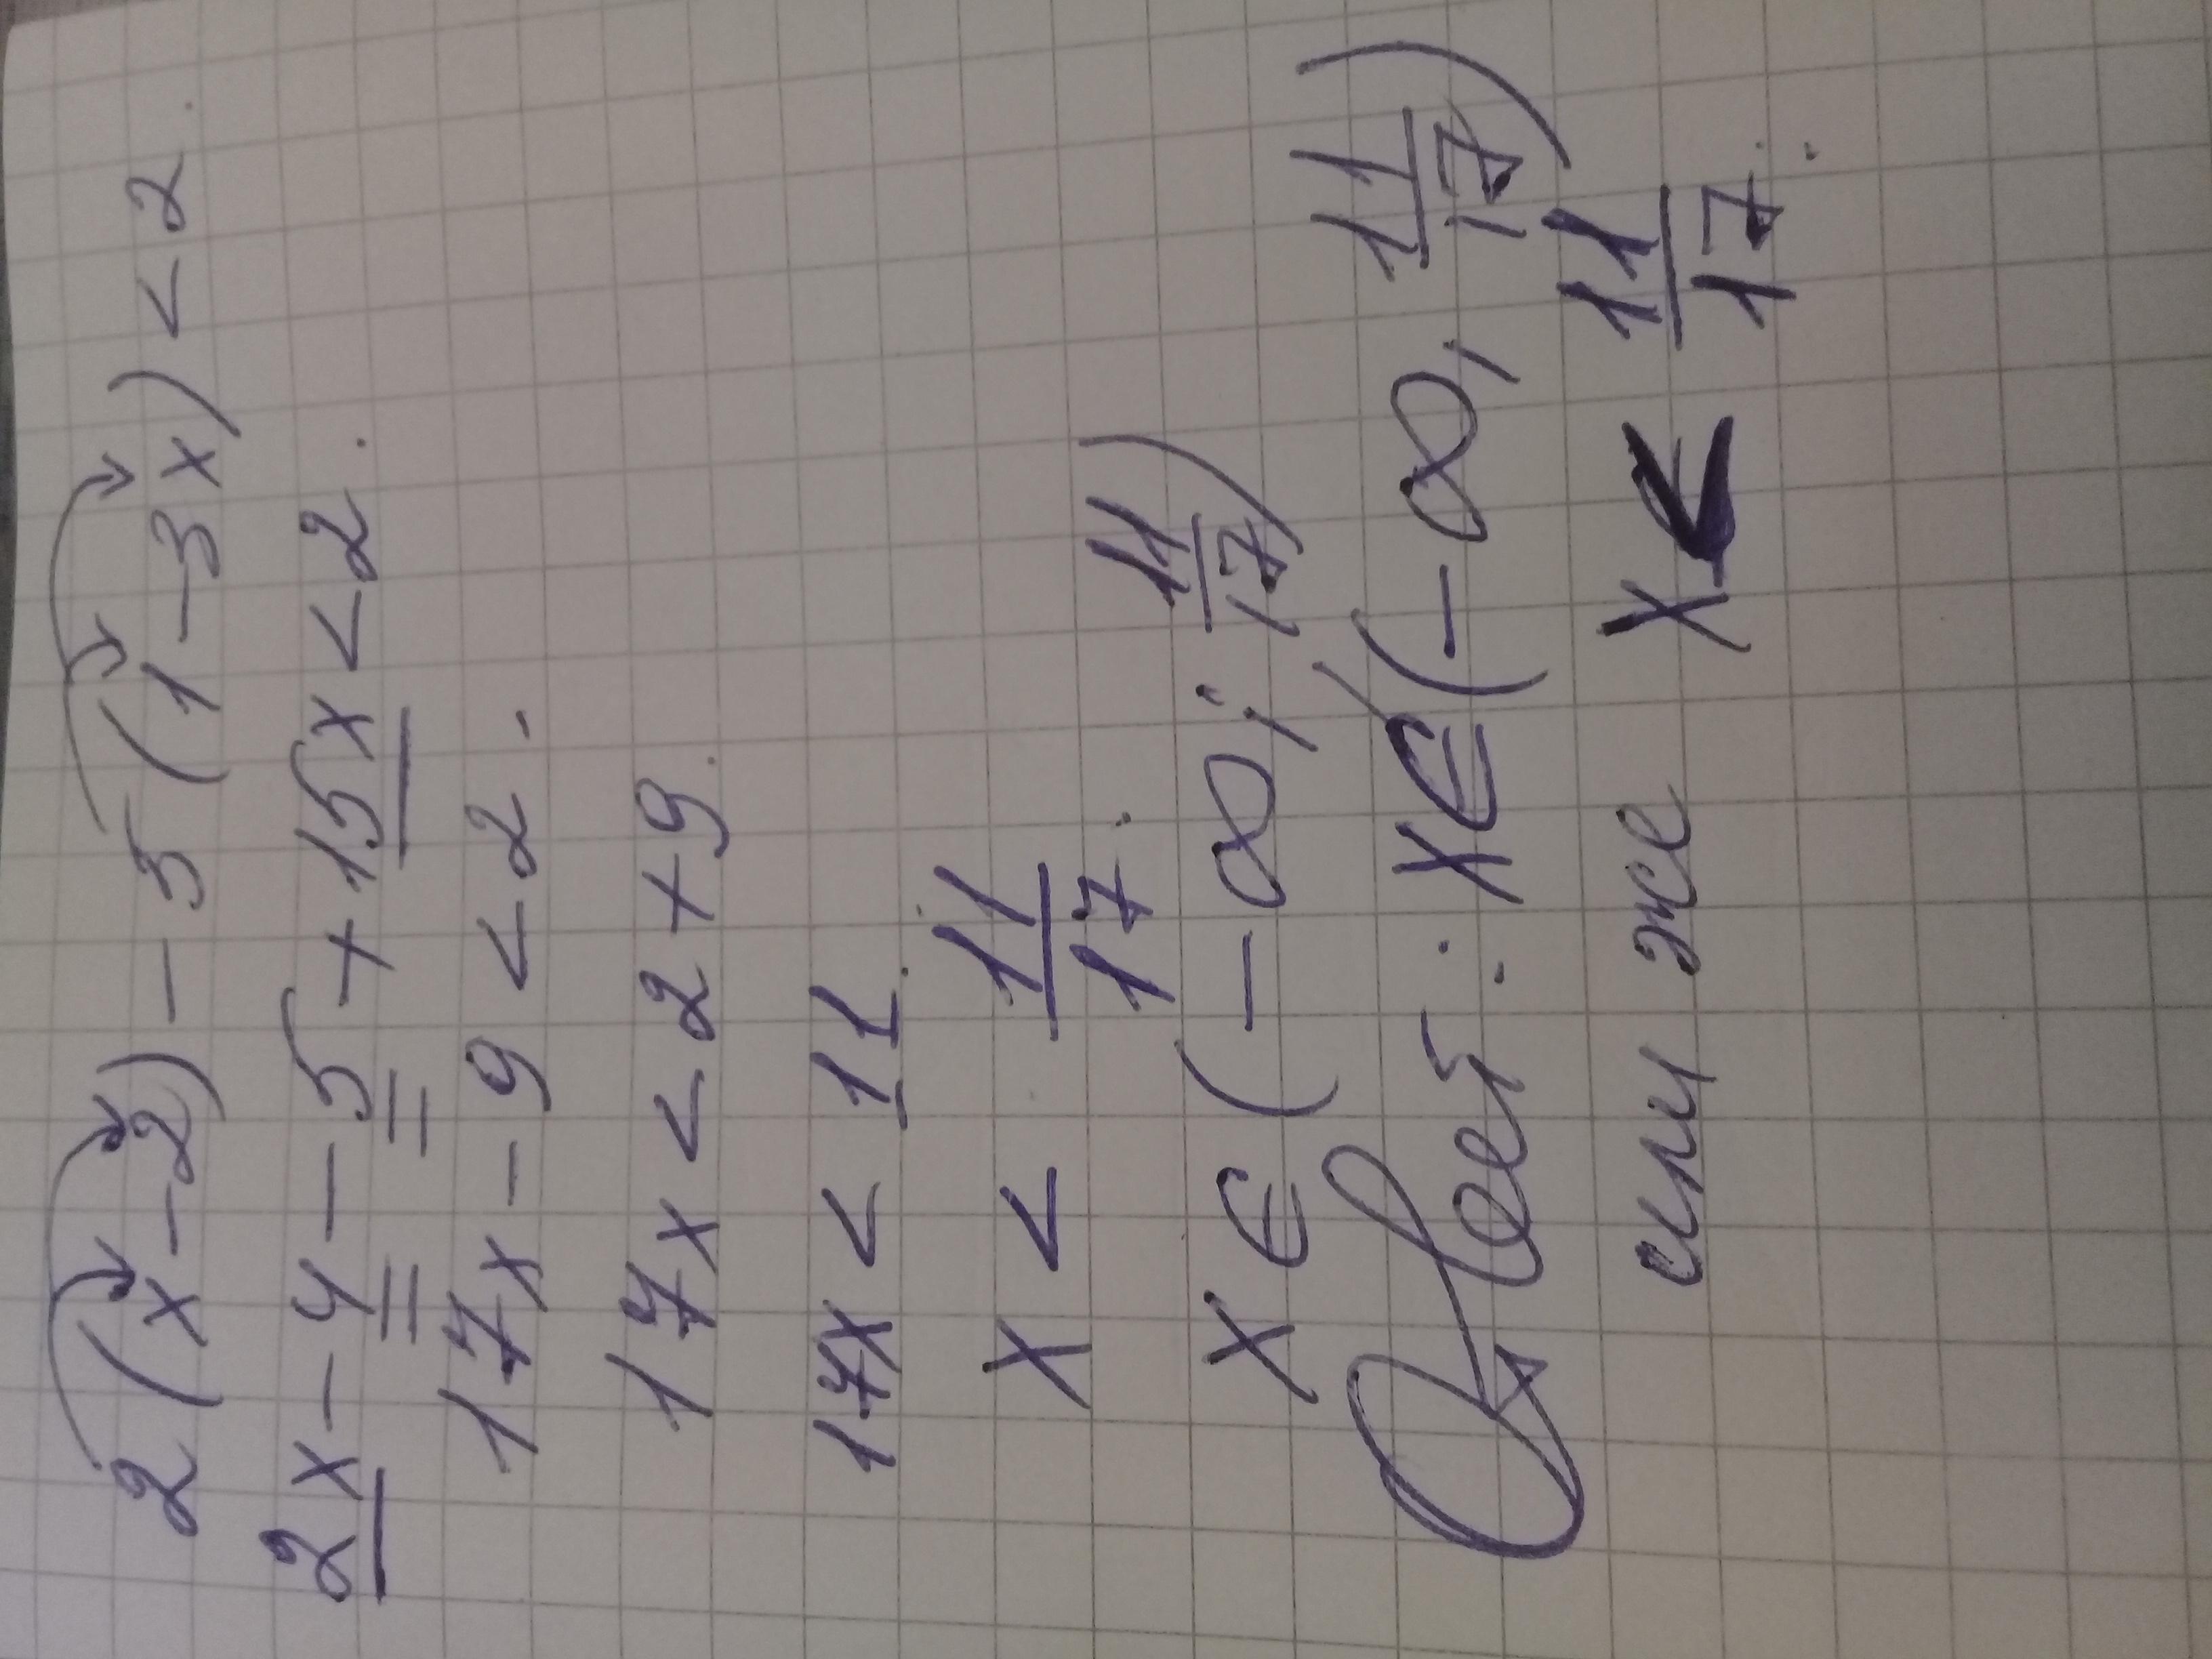 2(x-2)-5(1-3x)<2.
2x-4-5+15x<2.
17x-9<2.
17x<2+9.
17x<11.
x<11/17.
x∈(-∞; 11/17)
Ответ: x∈(-∞, 11/17)
или же x<11/17.